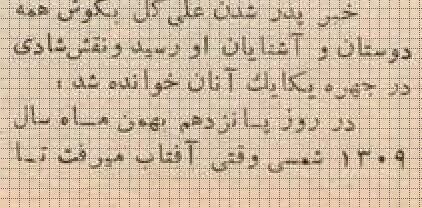 خبر پدر شدن علی گل بگوش همه
دوستان و آشنایان او رسید و نقش شادی
در چهره یکایك آنان خوانده شد ؛
در روز پانزدهم بهمن ماه سال
۱۳۰۹ شمسی وقتی آفتاب میرفت تا